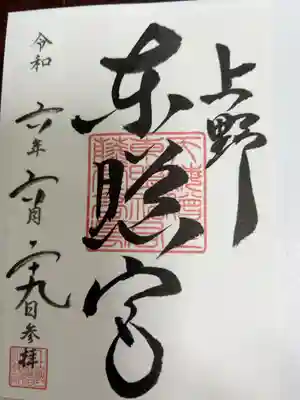 上野
東照宮
令和六年六月二十九日参拝